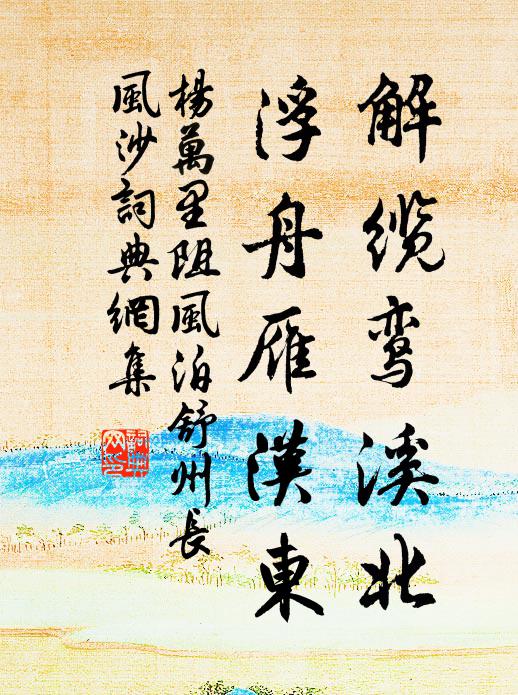 解缆鸾溪北
浮舟雁漠東
楊萬里阻風泊舒州長
風沙詞典網集